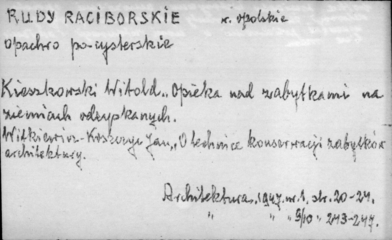 RUDY RACIBORSKIE w. opolskie
opactwo po-cysterskie
Kieszkowski Witold „Opieka nad zabytkami na
ziemiach odzyskanych.
Witkiewicz-Koszczyc Jan „O technice konserwacji zabytków
architektury.
Architektura, 1947 nr. 1, str. 20-21.
" " " 9/10 " 243-247.